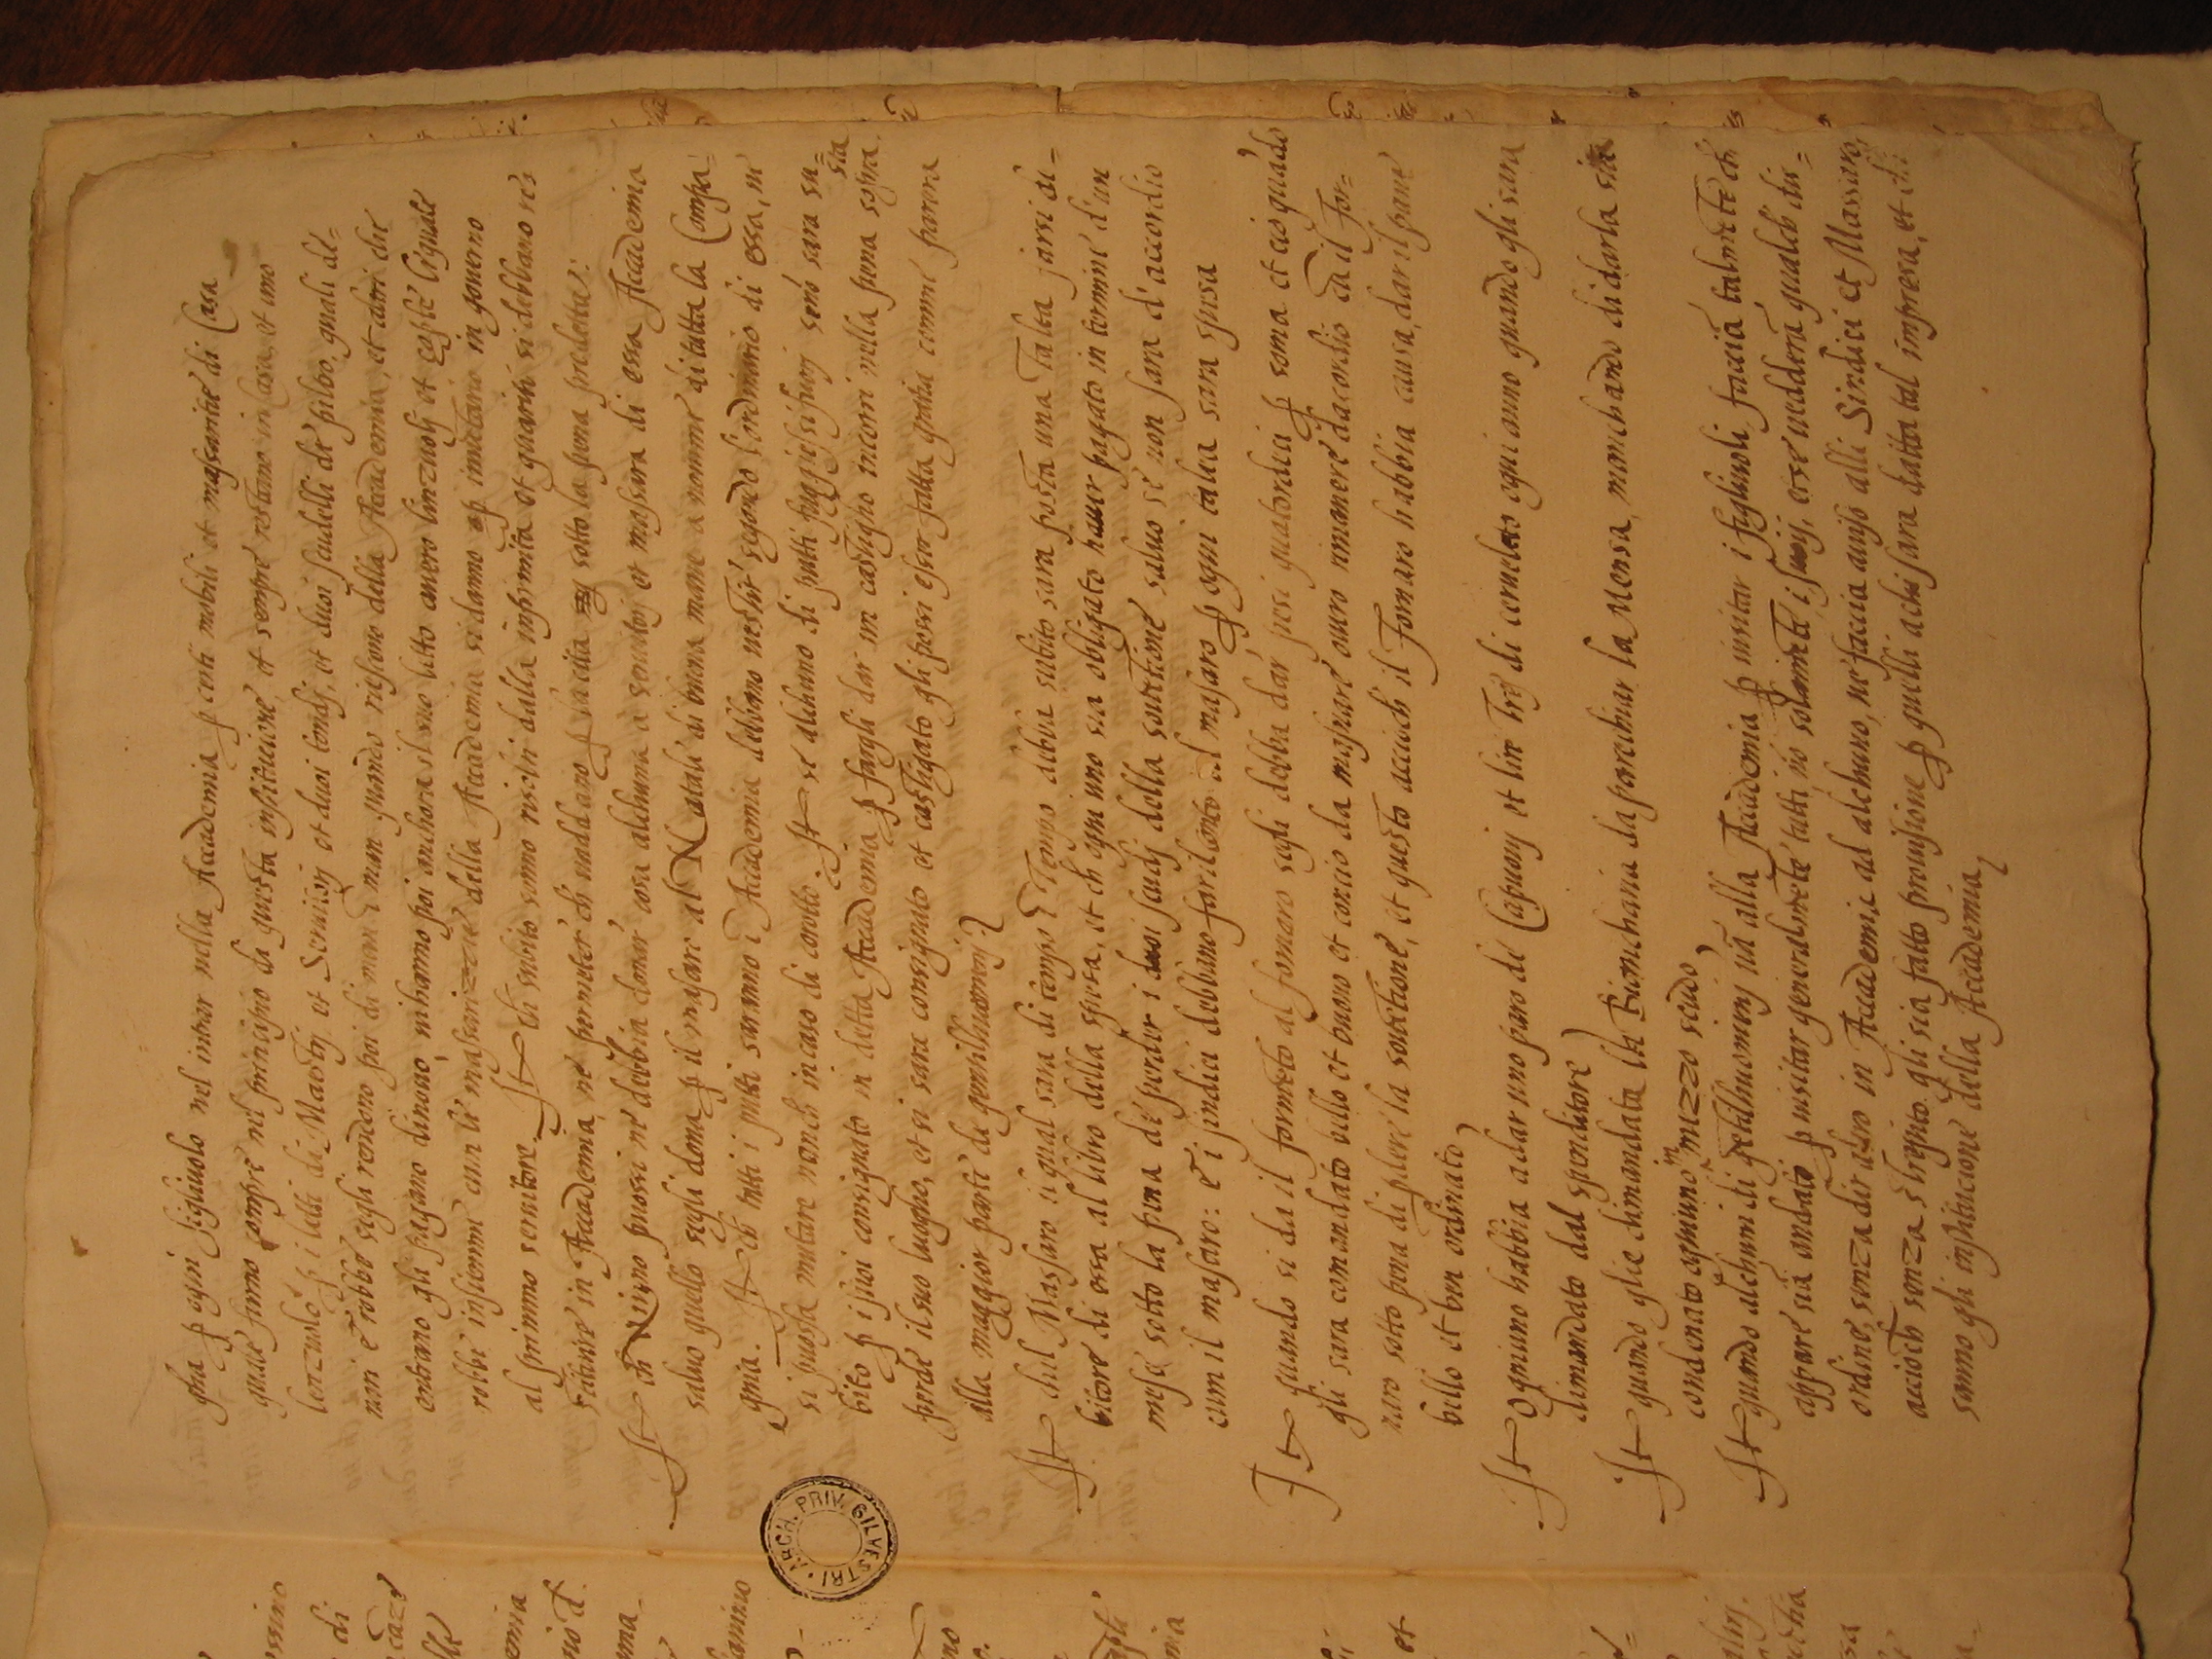 gha ꝑ ogni figliuolo nel intrar nella Accademia ꝑ certi mobili et massaritie di Casa
quale furno compre nel principio da questa institucione, et sempre restano in casa, et uno
lenzuolo ꝑ i letti di Mastri et Servitorj et duoi tondj, et duoi scudelli de peltro, quali de=
nari e robbe segli rendono poi di man ī man quando riescono della Accademia, et altri che
entrano gli pagano dinovo, mihanno poi anchora il suo letto avero linzuoli et coperte lequale
robbe insieme cum le massarizzie della Accademia si danno ꝑ inventario in governo
al primo servitore. It ch subito sonno riscivi dalla infirmita et guariti si debbano res
tituire in Accademia, ne permeter ch vaddano ꝑ la cita sotto la pena predetta:
It ch Niuno puossi ne debbia donar cosa alchuna a servitorj et massara di essa Accademia
salvo quello segli dona ꝑ il massaro al Natale di buona mane a nome di tutta la Compa=
gnia. It ch tutti i putti saranno ī Accademia debbano vestir segondo l'ordinario di essa, ne
si puossa mutare nonch in caso di corotto. It se alchuno di putti fuggiesi fuorj senò sara su=
sta
bito ꝑ i suoi consignato in detta Accademia ꝑ fargli dar un castigho incorri nella pena sopra
perde il suo luogho, et si sara consignato et castigato gli possi esser fatta gratia comme parara
alla maggior parte de gentilhuomenj
It chel Massaro il qual sara di tempo ī Tempo debia subito sara posta una Talia farsi de=
bitore di essa al libro della spesa, et ch ogni uno sia obligato haver pagato in termine d'un
mese sotto la pena de perder i duoi scudj della sorttione salvo se non sara d'accordio
cum il massaro: e i sindici debbiano far il conto al massaro ꝑ ogni talia sara spesa
It quando si da il formēto al fornaro segli debba dar pesi quatordici ꝑ soma et cio quādo
gli sara comandato bello et buono et concio da massare overo rimanere dacordio cū il For=
naro sotto pena di perdere la sorttione, et questo accioch il Fornaro habbia causa dar il pane
bello et ben ordinato
It Ogniuno habbia a dar uno paro de Capuonj et lire Trej di cerveleto ogni anno quando gli sara
dimandato dal spenditore
It quando glie dimandata la Biancharia da parechiar la Mensa, manchando di darla sia
condenato ogniuno in mezzo scudo
It quando alchuni di gētilhuomenj vā alla Accademia ꝑ visitar i figliuoli, faccia talmēte ch
appare siā andato ꝑ visitar generalmēte tutti nō solamēte i suoij, et se vedderā qualch dis=
ordine, senza dir altro in Accademia ad alchuno, ne faccia aviso alli Sindici et Massaro
accioch senza strepito gli sia fatto provisione ꝑ quelli achi sara datta tal impresa, et chi
sanno gli institucione della Accademia
ARCH. PRIV. GILVESTRI